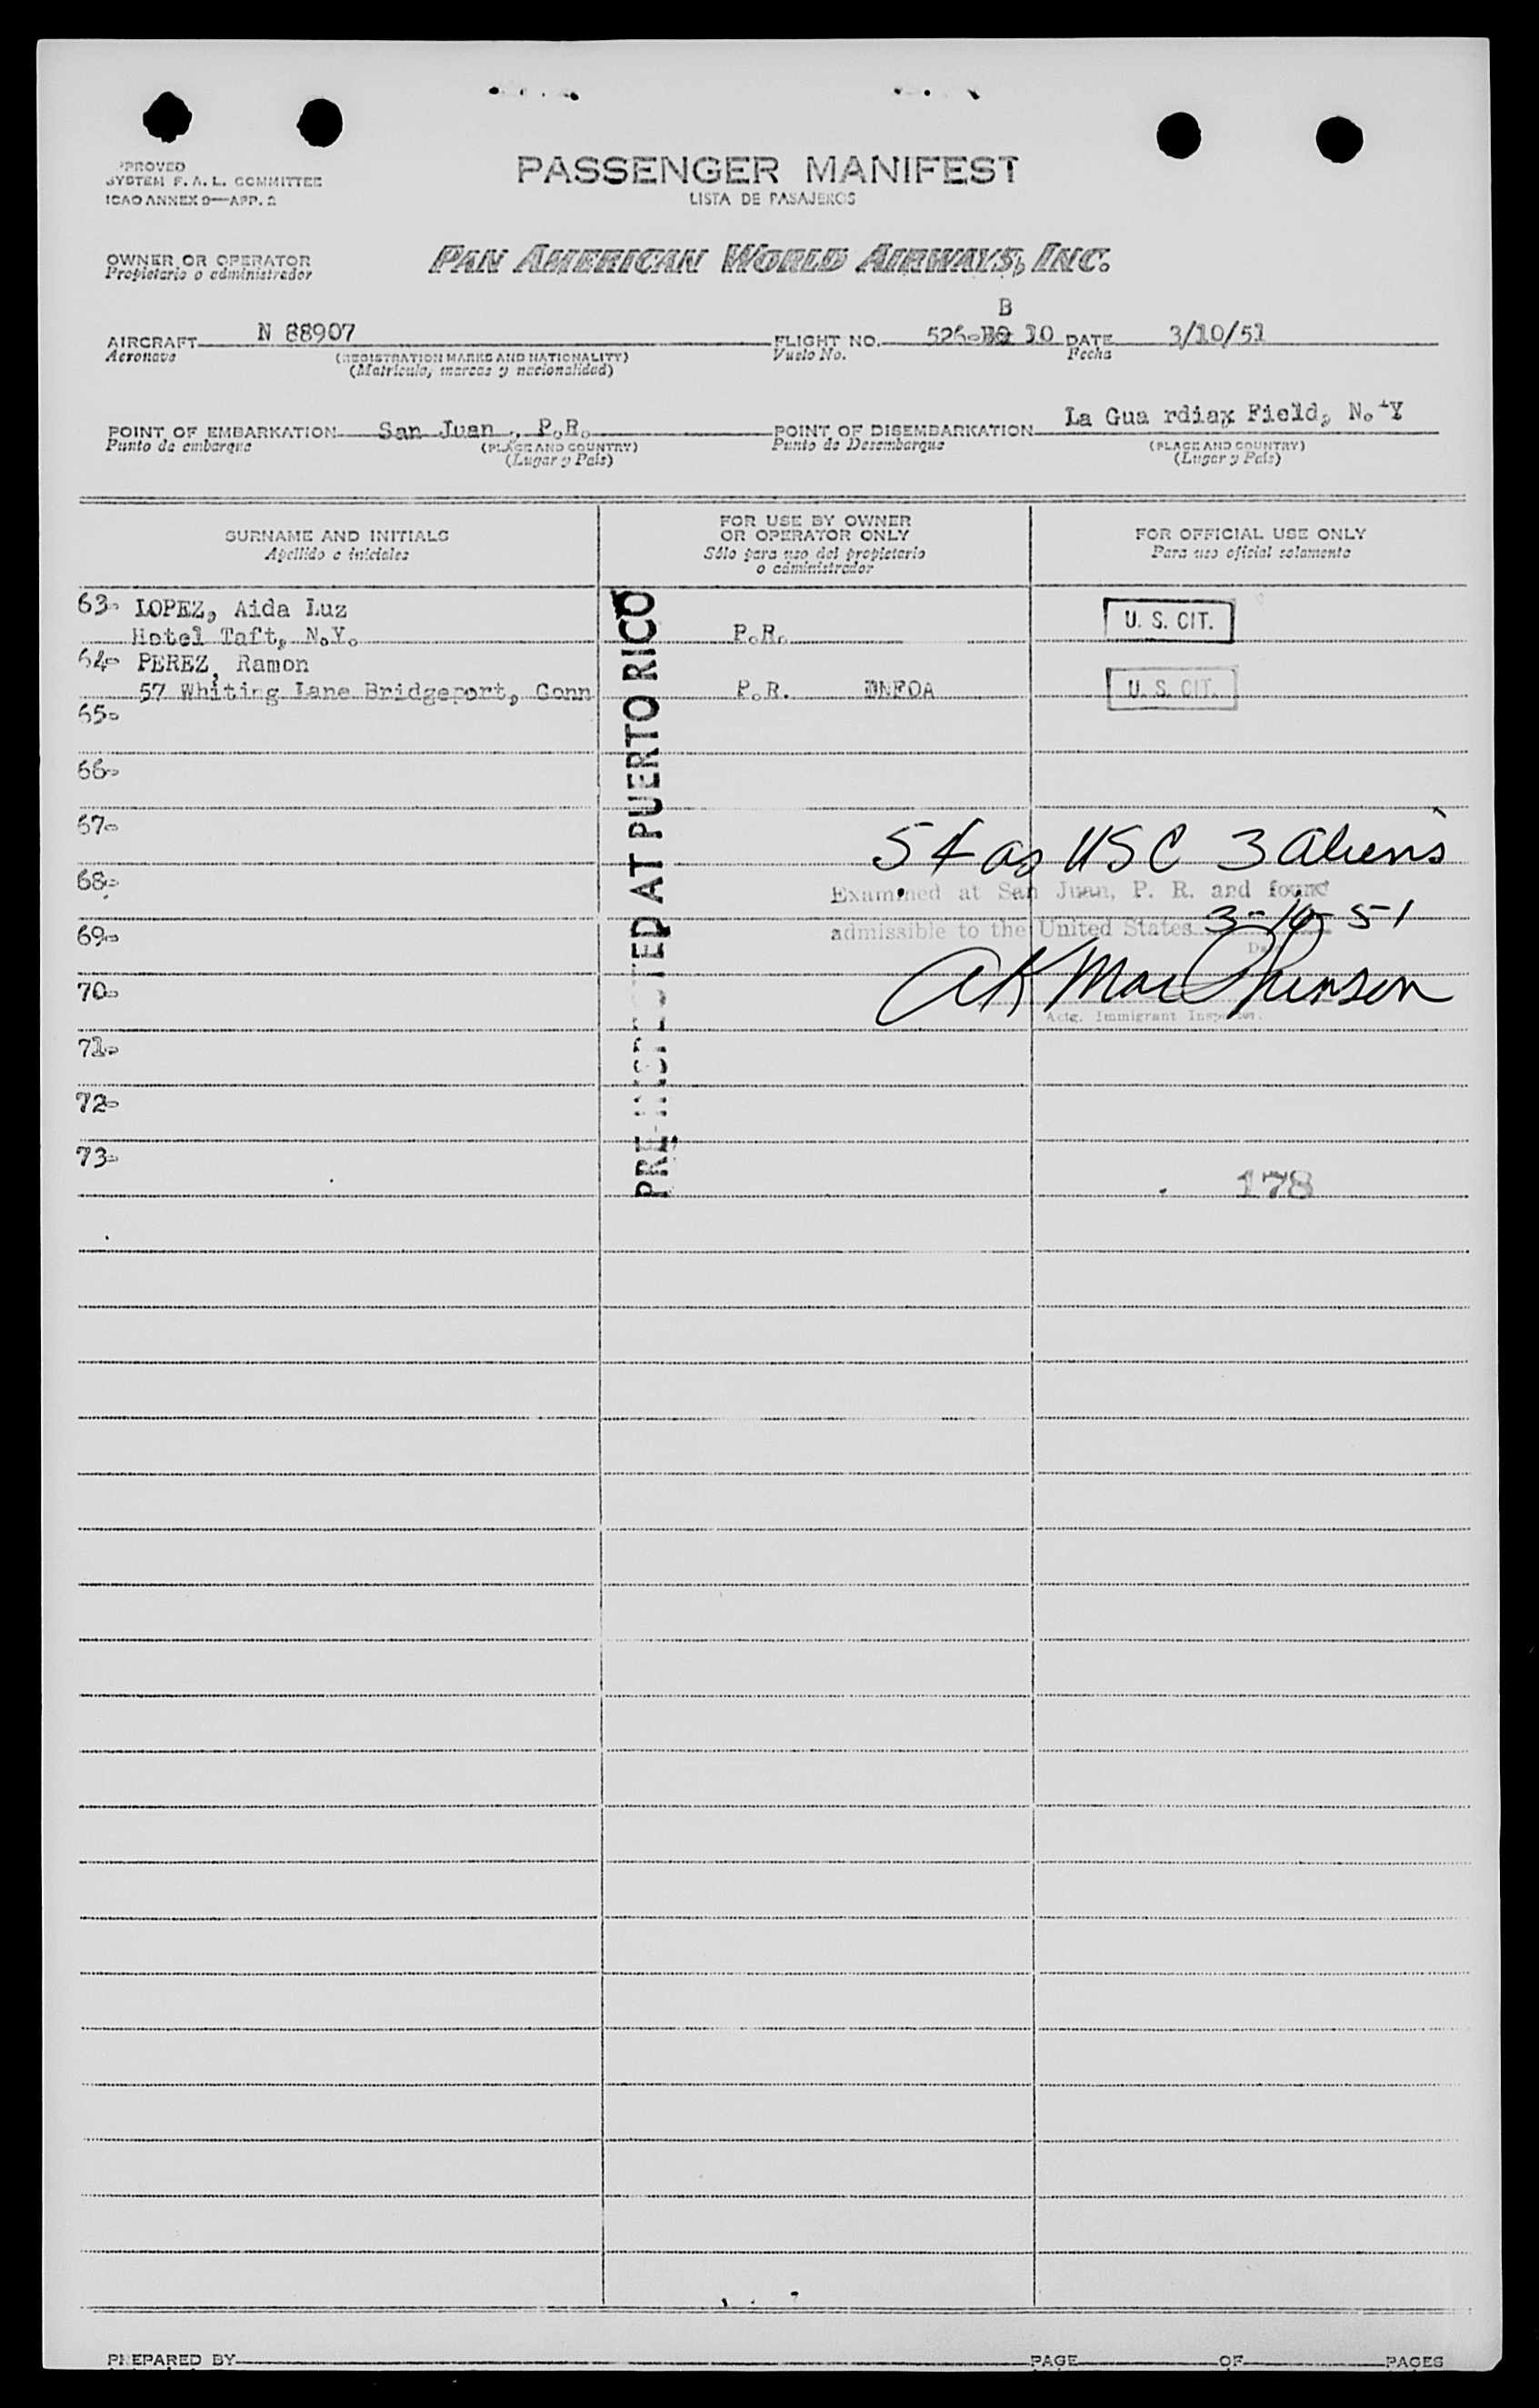 PPROVED
SYSTEM F. A. L. COMMITTEE
ICAO ANNEX 9—APP. 2
PASSENGER MANIFEST
LISTA DE PASAJEROS
OWNER OR OPERATOR
Propietario o administrador
PAN AMERICAN WORLD AIRWAYS, INC.
B
AIRCRAFT N 88907 FLIGHT NO. 526- 10 DATE 3/10/51
Aeronave (REGISTRATION MARKS AND NATIONALITY) Vuelo No. Fecha
(Matrícula, marcas y nacionalidad)
POINT OF EMBARKATION San Juan , P.R. POINT OF DISEMBARKATION La Gua rdiax Field, N. Y
Punto de embarque (PLACE AND COUNTRY) Punto de Desembarque (PLACE AND COUNTRY)
(Lugar y País) (Lugar y País)
SURNAME AND INITIALS
Apellido e iniciales
FOR USE BY OWNER
OR OPERATOR ONLY
Sólo para uso del propietario
o administrador
FOR OFFICIAL USE ONLY
Para uso oficial solamente
63- LOPEZ, Aida Luz
Hotel Taft, N.Y. P.R. U. S. CIT.
64- PEREZ, Ramon
57 Whiting Lane Bridgeport, Conn P.R. U. S. CIT.
65-
66-
67-
68-
69-
70-
71-
72-
73-
PRE-INSPECTED AT PUERTO RICO
54 as USC 3 aliens
Examined at San Juan, P. R. and found
admissible to the United States 3-10-51
Date
A K MacPherson
Actg. Immigrant Inspector.
178
PREPARED BY PAGE OF PAGES